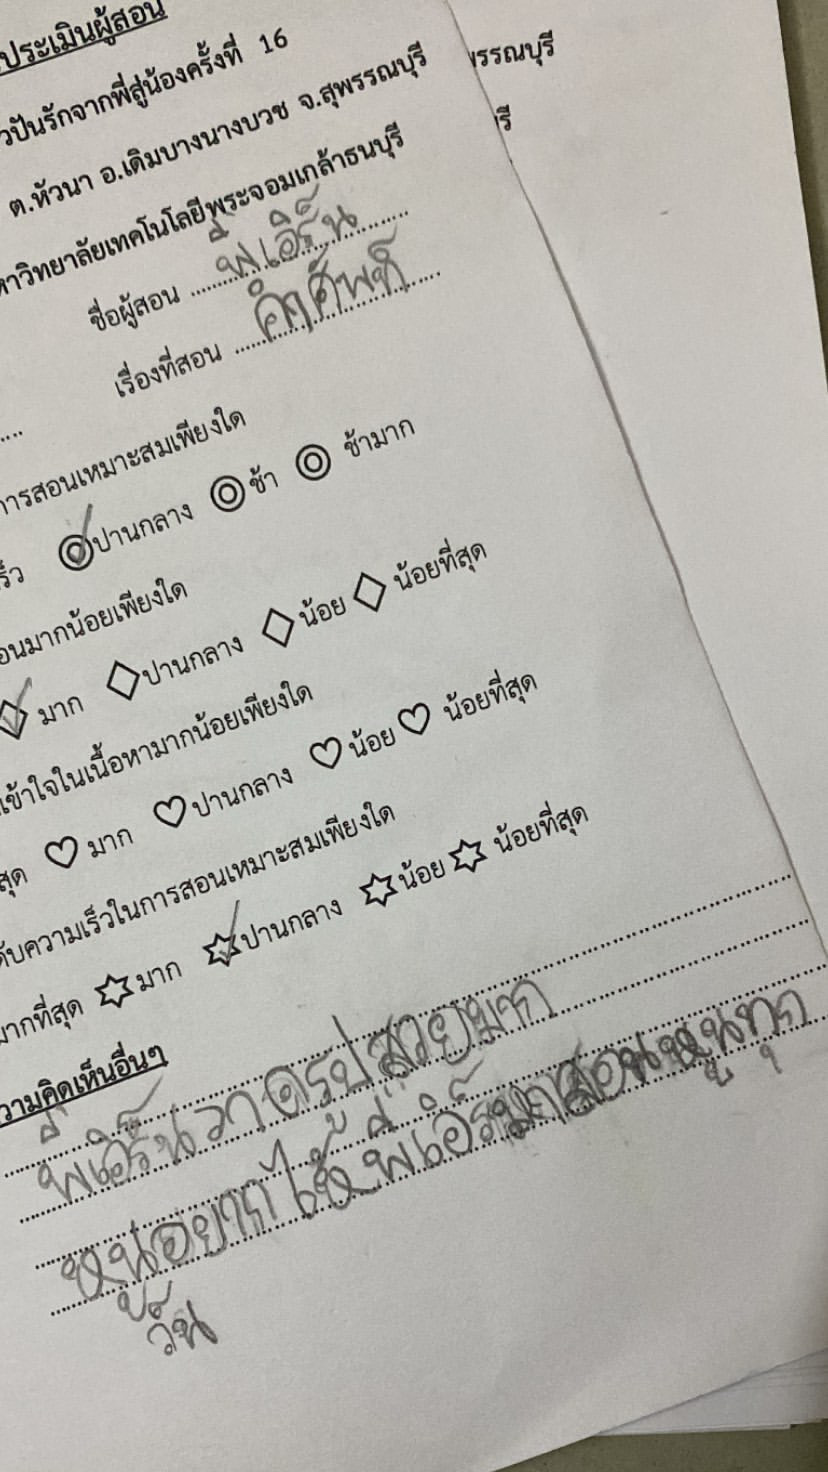 ประเมินผู้สอน
วปันรักจากพี่สู่น้องครั้งที่ 16
ต.หัวนา อ.เดิมบางนางบวช จ.สุพรรณบุรี
หาวิทยาลัยเทคโนโลยีพระจอมเกล้าธนบุรี
ชื่อผู้สอน พี่เอิร์น
เรื่องที่สอน คำศัพท์
การสอนเหมาะสมเพียงใด
ร็ว ปานกลาง ช้า ช้ามาก
อนมากน้อยเพียงใด
มาก ปานกลาง น้อย น้อยที่สุด
เข้าใจในเนื้อหามากน้อยเพียงใด
สุด มาก ปานกลาง น้อย น้อยที่สุด
ดับความเร็วในการสอนเหมาะสมเพียงใด
มากที่สุด มาก ปานกลาง น้อย น้อยที่สุด
วามคิดเห็นอื่นๆ
พี่เอิร์นวาดรูปสวยมาก
หนูอยากให้พี่เอิร์นมาสอนหนูทุก
วัน
พรรณบุรี
รี